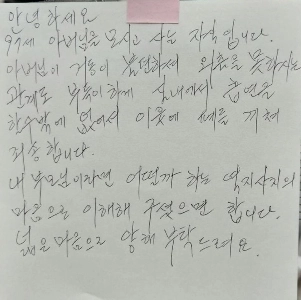 안녕하세요
97세 아버님을 모시고 사는 자식입니다.
아버님이 거동이 불편하셔 외출을 못하시는
관계로 부득이하게 실내에서 흡연을
할수밖에 없어서 이웃에 폐를 끼쳐
죄송합니다.
내 부모님이라면 어떨까 하는 역지사지의
마음으로 이해해 주셨으면 합니다.
넓은 마음으로 양해 부탁드려요.